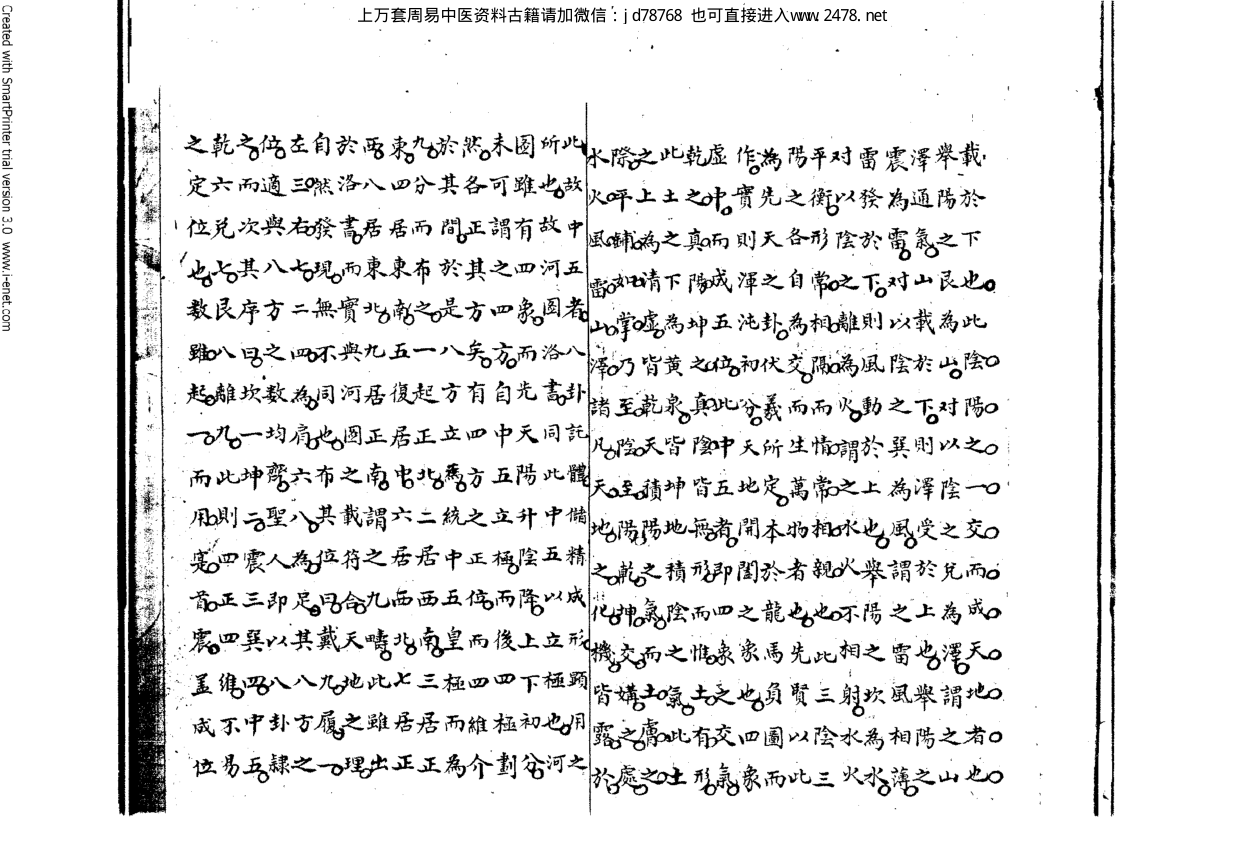 上万套周易中医资料古籍请加微信：jd78768 也可直接进入www.2478.net
載於下也此陰陽之一交而成天地者也
舉陽之艮為山对以陰之兌為澤謂之山
澤通氣山載於下則澤受於上也舉陽之
震為雷对以陰之巽為風謂之雷風相薄
雷發於下則風動於上也舉陽之坎為水
對以陰之離為火謂之水火不相射水火
平衡形常相隔而情常相親也此三陰三
陽之各自為交而生萬物者也先賢以此
為先天之卦伏羲所定本於龍馬負圖而
作實則渾沌初分天地開闔之象也四象
虛中而成五位此中五者即四象之交氣
乾之真陽坤之真陰皆無形而惟土有形
此土之下為黃泉皆坤地積陰之氣此土
之上為清虛皆乾天積陽之氣而土膚之
際平鋪如掌乃至陰至陽乾坤交媾之處
水火風雷山澤諸凡天地之化機皆露於
此故中五者八卦託體儲精成形顯用之
所也故河圖洛書同此中五以立極也河
圖雖有四象而先天陽升陰降上下初分
未可謂之四方自中五立極而後四極劃
然各正其方矣有四方之正位而四維介
於其間於是八方立焉統中五皇極而為
九分而布之一起正北二居西南三居正
東四居東南五復居中六居西北七居正
西八居東北九居正南謂之九疇此雖出
於洛書而實與河圖之載符合天地之理
自然發現無不同也布其位曰戴九履一
左三右七二四為肩六八為足其八方之
位適與八方之數均齊聖人即以八卦隸
之而次其序曰坎一坤二震三巽四中五
乾六兌七艮八離九此則四正四維不易
之定位也數雖起一而用寔首震蓋成位
Created with SmartPrinter trial version 3.0 www.i-enet.com